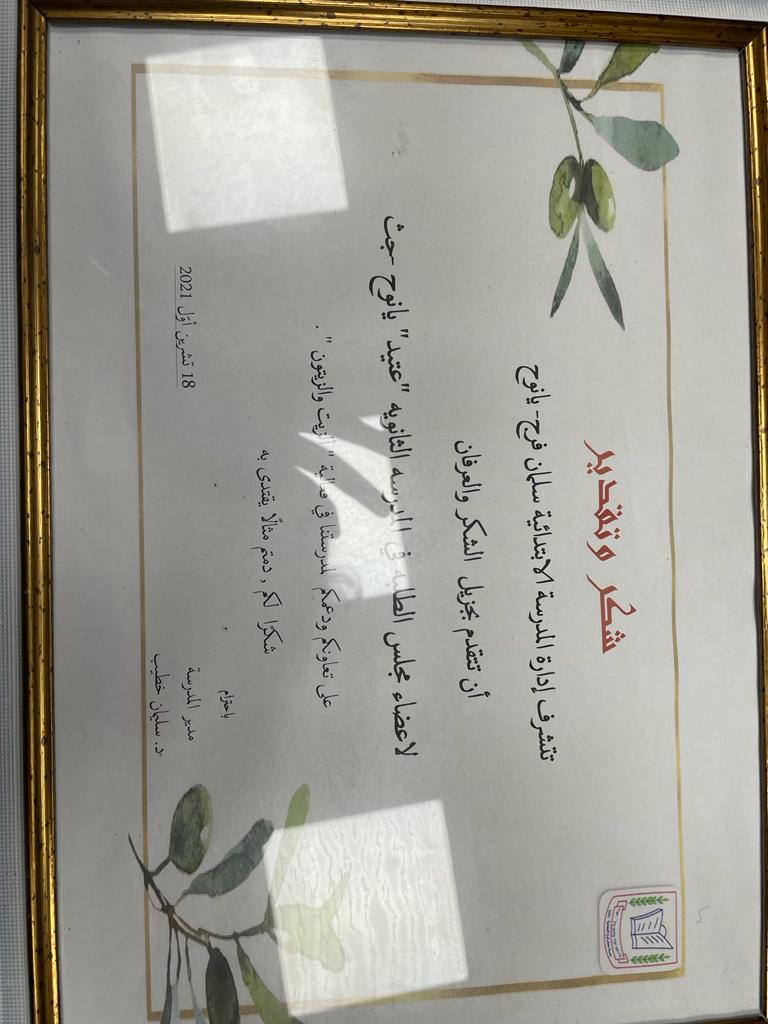 شكر وتقدير
تتشرف إدارة المدرسة الابتدائية سلمان فرج- يانوح
أن تتقدم بجزيل الشكر والعرفان
لاعضاء مجلس الطلبة في المدرسة الثانوية "عتيد" يانوح -جث
على تعاونكم ودعمكم لمدرستنا في فعالية " الزيت والزيتون" .
شكرًا لكم , دمتم مثالًا يقتدى به
باحترام
مدير المدرسة
د. سليمان خطيب
18 تشرين أوّل 2021